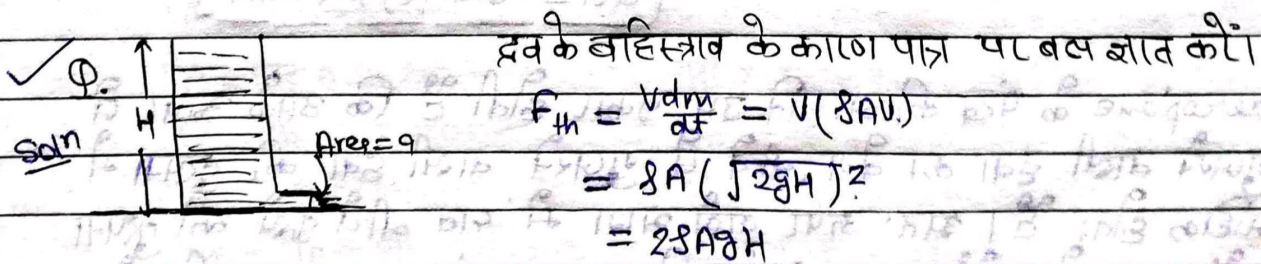 ✓ Q. H Area = a द्रव के बहिस्त्राव के कारण पात्र पर बल ज्ञात करें।
Soln F_th = Vdm/dt = V(ρAV.)
= ρA(√2gH)²
= 2ρAgH